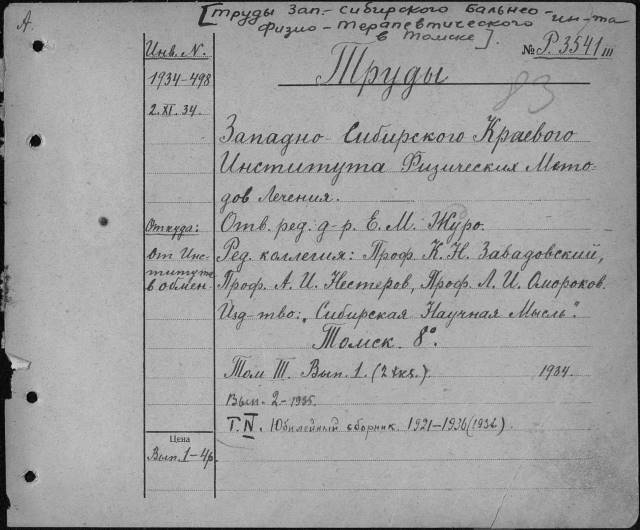 A.
[Труды Зап.-Сибирского Бальнео-
Физио-Терапевтического ин-та
в Томске].
№ P.3541 III
Инв. N.
1934-498
2.XI.34.
Труды
83
Западно-Сибирского Краевого
Института Физических Мето-
дов Лечения.
Откуда:
От Инс-
титута
в обмен
Отв. ред. д-р. Е. М. Журо.
Ред. коллегия: Проф. К. Н. Завадовский,
Проф. А. И. Нестеров, Проф. Л. И. Омороков.
Изд-тво: „Сибирская Научная Мысль".
Томск. 8°.
Том III. Вып. 1. (2 экз.) 1934.
Вып. 2-1935.
Т. IV. Юбилейный сборник. 1921-1936 (1936)
Цена
Вып. 1-4р.